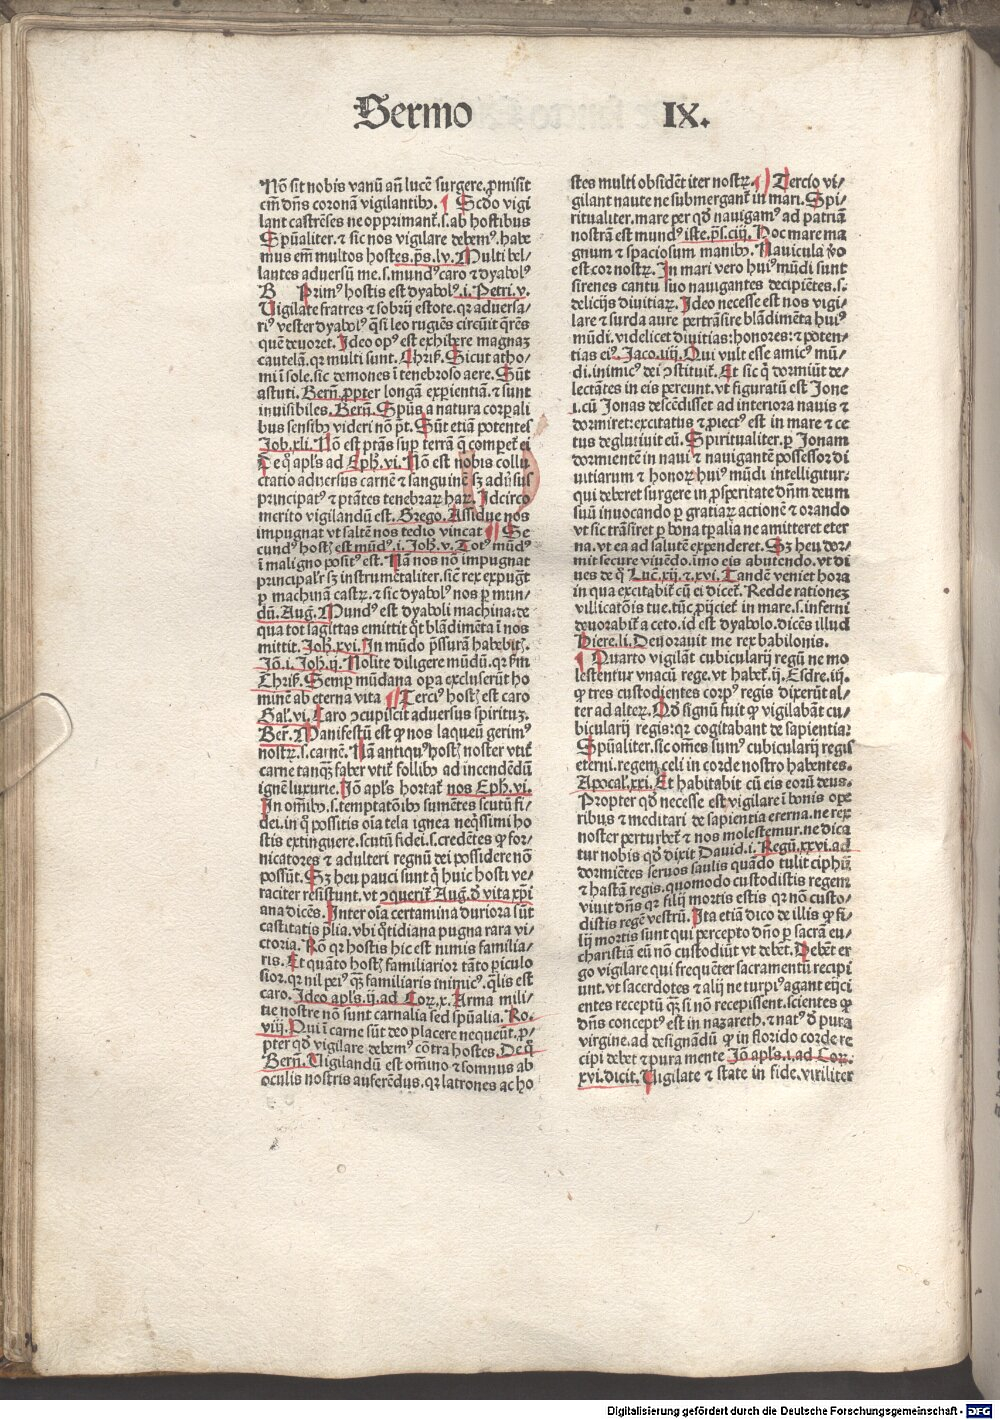 Sermo IX.
Nō sit nobis vanū an̄ lucē surgere. ꝓmisit
em̄ dn̄s coronā vigilantibꝰ. ¶ Scd̓o vigi
lant castrēses ne opprimant᷑.s.ab hostibus
Spūaliter.⁊ sic nos vigilare debemꝰ.habe
mus em̄ multos hostes.ps̄.lv. Multi bel⸗
lantes aduersū me.s.mundꝰ caro ⁊ dyabolꝰ
B Primꝰ hostis est dyabolꝰ.i. Petri.v.
Uigilate fratres ⁊ sobrij estote.qꝛ aduersa⸗
riꝰ vester dyabolꝰ qͣsi leo rugiēs circūit q̄rēs
quē deuoret. Ideo opꝰ est exhibere magnaꝫ
cautelā.qꝛ multi sunt. Chris̄. Sicut atho⸗
mi ī sole.sic demones ī tenebroso aere. Sūt
astuti. Bern̄.ꝓpter longā exꝑientiā.⁊ sunt
inuisibiles. Bern̄. Spūs a natura corꝑali
bus sensibꝰ videri nō pn̄t. Sūt etiā potentes
Job.xli. Nō est ptās suꝑ terrā q̄ compet᷑ ei
De qͦ apl̓s ad Eph̓.vi. Nō est nobis collu
ctatio aduersus carnē ⁊ sanguinē sꝫ adūsus
principatꝰ ⁊ ptātes tenebraꝝ haꝝ. Idcirco
merito vigilandū est. Grego. Assidue nos
impugnat vt saltē nos tedio vincat ¶ Se
cundꝰ host᷑ est mūdꝰ.i. Joh̓.v. Totꝰ mūdꝰ
ī maligno positꝰ est. Nā nos nō impugnat
principal̓r sꝫ instrumētaliter.sic̄ rex expugt̄
ꝑ machinā castꝝ.⁊ sic dyabolꝰ nos ꝑ mun⸗
dū. Aug. Mundꝰ est dyaboli machina.de
qua tot sagittas emittit qͦt blādimēta ī nos
mittit. Joh̓.xvi. In mūdo p̄ssurā habebit᷑.
Iō.i. Joh̓.ij. Nolite diligere mūdū.qꝛ ẜm
Chris̄. Semꝑ mūdana oꝑa excluserūt ho
minē ab eterna vita ¶ Terciꝰ host᷑ est caro
Gal̓.vi. Caro ꝯcupiscit aduersus spirituꝫ.
Ber̄. Manifestū est ꝙ nos laqueū gerimꝰ
nostꝝ.s.carnē. Nā antiquꝰ host᷑ noster vtit᷑
carne tanqͣꝫ faber vtit᷑ follibꝰ ad incendēdū
ignē luxurie. Iō apl̓s hortat᷑ nos Eph̓.vi.
In om̄ibꝰ.s.temptatōibꝰ sumētes scutū fi⸗
dei.in qͦ possitis oīa tela ignea neqͥssimi ho
stis extinguere.scutū fidei.s.credētes ꝙ for⸗
nicatores ⁊ adulteri regnū dei possidere nō
possūt. Sꝫ heu pauci sunt qͥ huic hosti ve⸗
raciter resistunt.vt ꝯquerit᷑ Aug.d̓ vita xp̄i
ana dicēs. Inter oīa certamina duriora sūt
castitatis p̄lia.vbi qͦtidiana pugna rara vi⸗
ctoria. Rō qꝛ hostis hic est nimis familia⸗
ris. Et quāto host᷑ familiarior tāto ꝑiculo
sior.qꝛ nil peiꝰ qͣꝫ familiaris inimicꝰ.q̄lis est
caro. Ideo apl̓s.ij.ad Coꝝ.x. Arma mili⸗
tie nostre nō sunt carnalia sed spūalia. Ro.
viij. Qui ī carne sūt deo placere nequeūt.ꝓ⸗
pter qd̓ vigilare debemꝰ cōtra hostes. De qͦ
Bern̄. Uigilandū est om̄ino ⁊ somnus ab
oculis nostris auferēdus.qꝛ latrones ac ho
stes multi obsidēt iter nostꝝ. ¶ Tercio vi⸗
gilant naute ne submergant᷑ in mari. Spi⸗
ritualiter.mare per qd̓ nauigamꝰ ad patriā
nostrā est mundꝰ iste.ps̄.ciij. Hoc mare ma
gnum ⁊ spaciosum manibꝰ. Nauicula v̓o
est cor nostꝝ. In mari vero huiꝰ mūdi sunt
sirenes cantu suo nauigantes decipiētes.s.
delicijs diuitiaꝝ. Ideo necesse est nos vigi⸗
lare ⁊ surda aure pertrāsire blādimēta huiꝰ
mūdi.videlicet diuitias:honores:⁊ poten⸗
tias eiꝰ. Jaco.iiij. Qui vult esse amicꝰ mū⸗
di.inimicꝰ dei ꝯstituit᷑. Et sic qͥ dormiūt de⸗
lectātes in eis pereunt.vt figuratū est Jone
.i.cū Jonas descēdisset ad interiora nauis ⁊
dormiret:excitatus ⁊ ꝓiectꝰ est in mare ⁊ ce
tus deglutiuit eū. Spiritualiter.ꝑ Jonam
dormientē in naui ⁊ nauigantē possessor di
uitiarum ⁊ honoꝝ huiꝰ mūdi intelligitur.
qui deberet surgere in ꝓsperitate dn̄m deum
suū inuocando ꝑ gratiaꝝ actionē ⁊ orando
vt sic trāsiret ꝑ bona tꝑalia ne amitteret eter
na.vt ea ad salutē expenderet. Sꝫ heu dor⸗
mit secure viuēdo.imo eis abutendo.vt di
ues de qͦ Luc̄.xij.⁊.xvi. Tandē veniet hora
in qua excitabit᷑ cū ei dicet᷑. Redde rationeꝫ
villicatōis tue.tūc ꝓijciet᷑ in mare.s.inferni
deuorabit᷑ a ceto.id est dyabolo.dicēs illud
Hiere.li. Deuorauit me rex babilonis.
¶ Quarto vigilāt cubicularij regū ne mo
lestentur vnacū rege.vt habet᷑.ij. Esdre.iij.
ꝙ tres custodientes corpꝰ regis dixerūt al⸗
ter ad alteꝝ. Qd̓ signū fuit ꝙ vigilabāt cu⸗
bicularij regis:qꝛ cogitabant de sapientia:
Spūaliter.sic om̄es sumꝰ cubicularij regis
eterni.regem celi in corde nostro habentes.
Apocal̓.xxi. Et habitabit cū eis eorū deus.
Propter qd̓ necesse est vigilare ī bonis ope
ribus ⁊ meditari de sapientia eterna.ne rex
noster perturbet᷑ ⁊ nos molestemur.ne dica
tur nobis qd̓ dixit Dauid.i. Regū.xxvi.ad
dormiētes seruos saulis quādo tulit ciphū
⁊ hastā regis.quomodo custodistis regem
viuit dn̄s qꝛ filij mortis estis qꝛ nō custo⸗
distis regē vestrū. Ita etiā dico de illis ꝙ fi⸗
lij mortis sunt qui percepto dn̄o ꝑ sacrā eu⸗
charistiā eū nō custodiūt vt debēt. Debēt er
go vigilare qui frequēter sacramentū recipi
unt.vt sacerdotes ⁊ alij ne turpiꝰ agant eijci
entes receptū qͣꝫ si nō recepissent.scientes ꝙ
dn̄s conceptꝰ est in nazareth.⁊ natꝰ d̓ pura
virgine.ad designādū ꝙ in florido corde re
cipi debet ⁊ pura mente Iō apl̓s.i.ad Coꝝ.
xvi.dicit. Uigilate ⁊ state in fide.viriliter
Digitalisierung gefördert durch die Deutsche Forschungsgemeinschaft - DFG